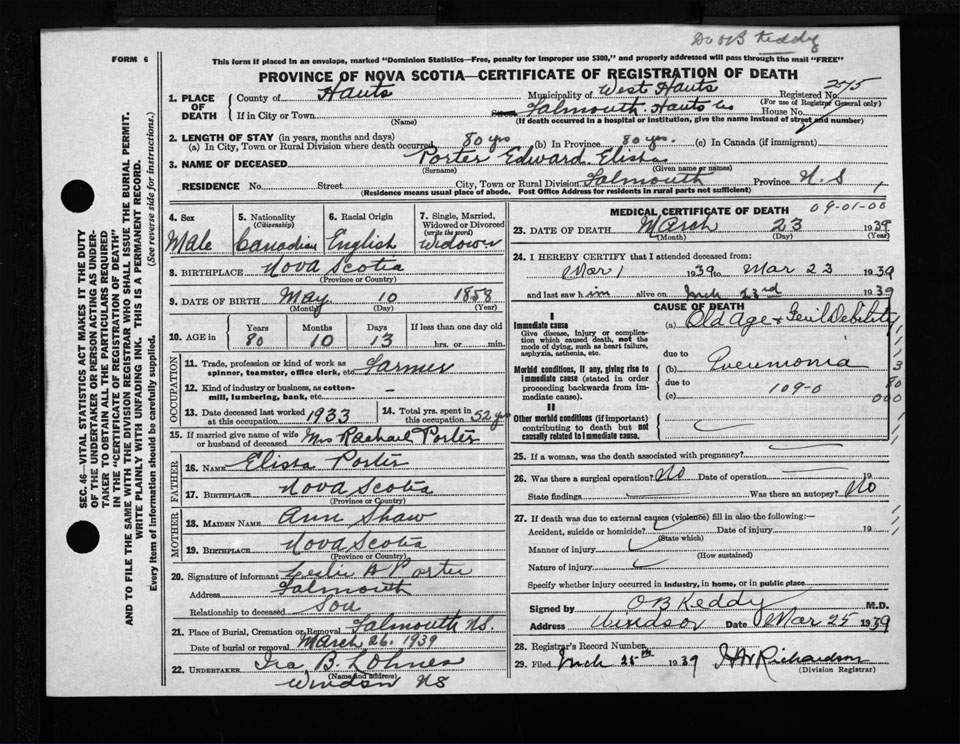 Dr OB Keddy
FORM 6
This form if placed in an envelope, marked "Dominion Statistics—Free, penalty for improper use $300," and properly addressed will pass through the mail "FREE"
PROVINCE OF NOVA SCOTIA—CERTIFICATE OF REGISTRATION OF DEATH
275
1. PLACE OF DEATH
County of Hants Municipality of West Hants Registered No.
(For use of Registrar General only)
If in City or Town Falmouth Hants Co House No.
(Name) (If death occurred in a hospital or institution, give the name instead of street and number)
2. LENGTH OF STAY (in years, months and days)
(a) In City, Town or Rural Division where death occurred 80 yrs (b) In Province 80 yrs. (c) In Canada (if immigrant)
3. NAME OF DECEASED Porter Edward Elisha
(Surname) (Given name or names)
RESIDENCE No. Street City, Town or Rural Division Falmouth Province N.S
(Residence means usual place of abode. Post Office Address for residents in rural parts not sufficient)
4. Sex Male
5. Nationality (Citizenship) Canadian
6. Racial Origin English
7. Single, Married, Widowed or Divorced (write the word) Widower
8. BIRTHPLACE Nova Scotia
(Province or Country)
9. DATE OF BIRTH May 10 1858
(Month) (Day) (Year)
10. AGE in Years 80 Months 10 Days 13 If less than one day old
hrs. or min.
OCCUPATION
11. Trade, profession or kind of work as spinner, teamster, office clerk, etc. Farmer
12. Kind of industry or business, as cotton-mill, lumbering, bank, etc. —
13. Date deceased last worked at this occupation 1933
14. Total yrs. spent in this occupation 52 yrs
15. If married give name of wife or husband of deceased Mrs Rachael Porter
FATHER
16. NAME Elista Porter
17. BIRTHPLACE Nova Scotia
(Province or Country)
MOTHER
18. MAIDEN NAME Ann Shaw
19. BIRTHPLACE Nova Scotia
(Province or Country)
20. Signature of informant Leslie A Porter
Address Falmouth
Relationship to deceased Son
21. Place of Burial, Cremation or Removal Falmouth NS.
Date of burial or removal March 26. 1939
22. UNDERTAKER Ira B. Lohnes
(Name and address)
Windsor NS
MEDICAL CERTIFICATE OF DEATH
09-01-00
23. DATE OF DEATH March 23 1939
(Month) (Day) (Year)
24. I HEREBY CERTIFY that I attended deceased from:
Mar 1 1939 to Mar 23 1939
and last saw h im alive on Mch 23rd 1939
CAUSE OF DEATH
I
Immediate cause
Give disease, injury or complication which caused death, not the mode of dying, such as heart failure, asphyxia, asthenia, etc.
(a) Old Age & Gen'l Debility
due to
Morbid conditions, if any, giving rise to immediate cause (stated in order proceeding backwards from immediate cause).
(b) Pneumonia
due to 109-0
(c)
3
80
000
II
Other morbid conditions (if important) contributing to death but not causally related to immediate cause.
25. If a woman, was the death associated with pregnancy?
26. Was there a surgical operation? No Date of operation 19
State findings Was there an autopsy? No
27. If death was due to external causes (violence) fill in also the following:—
Accident, suicide or homicide? Date of injury 19
(State which)
Manner of injury
(How sustained)
Nature of injury
Specify whether injury occurred in industry, in home, or in public place
Signed by OB Keddy M.D.
Address Windsor Date Mar 25 1939
28. Registrar's Record Number
29. Filed Mch 25th 1939 HW Richardson
(Division Registrar)
SEC. 46—VITAL STATISTICS ACT MAKES IT THE DUTY
OF THE UNDERTAKER OR PERSON ACTING AS UNDER-
TAKER TO OBTAIN ALL THE PARTICULARS REQUIRED
IN THE "CERTIFICATE OF REGISTRATION OF DEATH"
AND TO FILE THE SAME WITH THE DIVISION REGISTRAR WHO SHALL ISSUE THE BURIAL PERMIT.
WRITE PLAINLY WITH UNFADING INK. THIS IS A PERMANENT RECORD.
Every item of information should be carefully supplied. (See reverse side for instructions.)